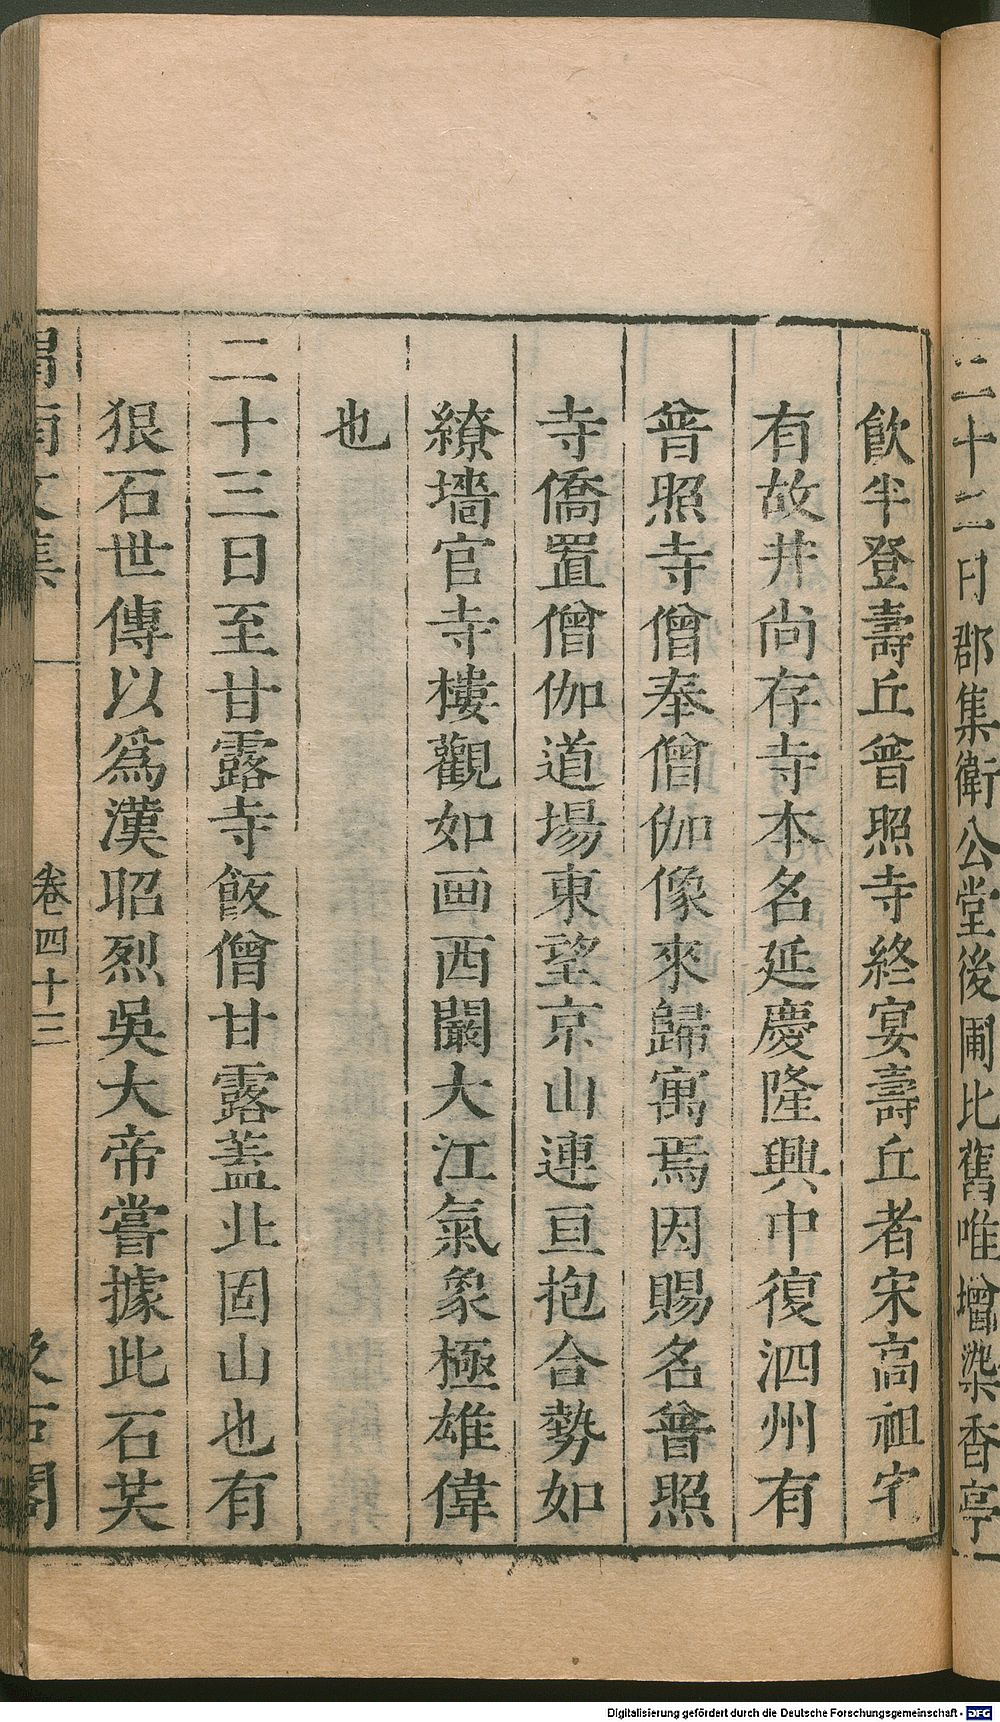 二十二日郡集衛公堂後圃比舊唯增染香亭
飲半登壽丘普照寺終宴壽丘者宋高祖宅
有故井尚存寺本名延慶隆興中復泗州有
普照寺僧奉僧伽像來歸寓焉因賜名普照
寺僑置僧伽道場東望京山連亘抱合勢如
繚墻官寺樓觀如画西闞大江氣象極雄偉
也
二十三日至甘露寺飯僧甘露蓋北固山也有
狠石世傳以爲漢昭烈吳大帝嘗據此石共
渭南文集 卷四十三 汲古閣
Digitalisierung gefördert durch die Deutsche Forschungsgemeinschaft - DFG